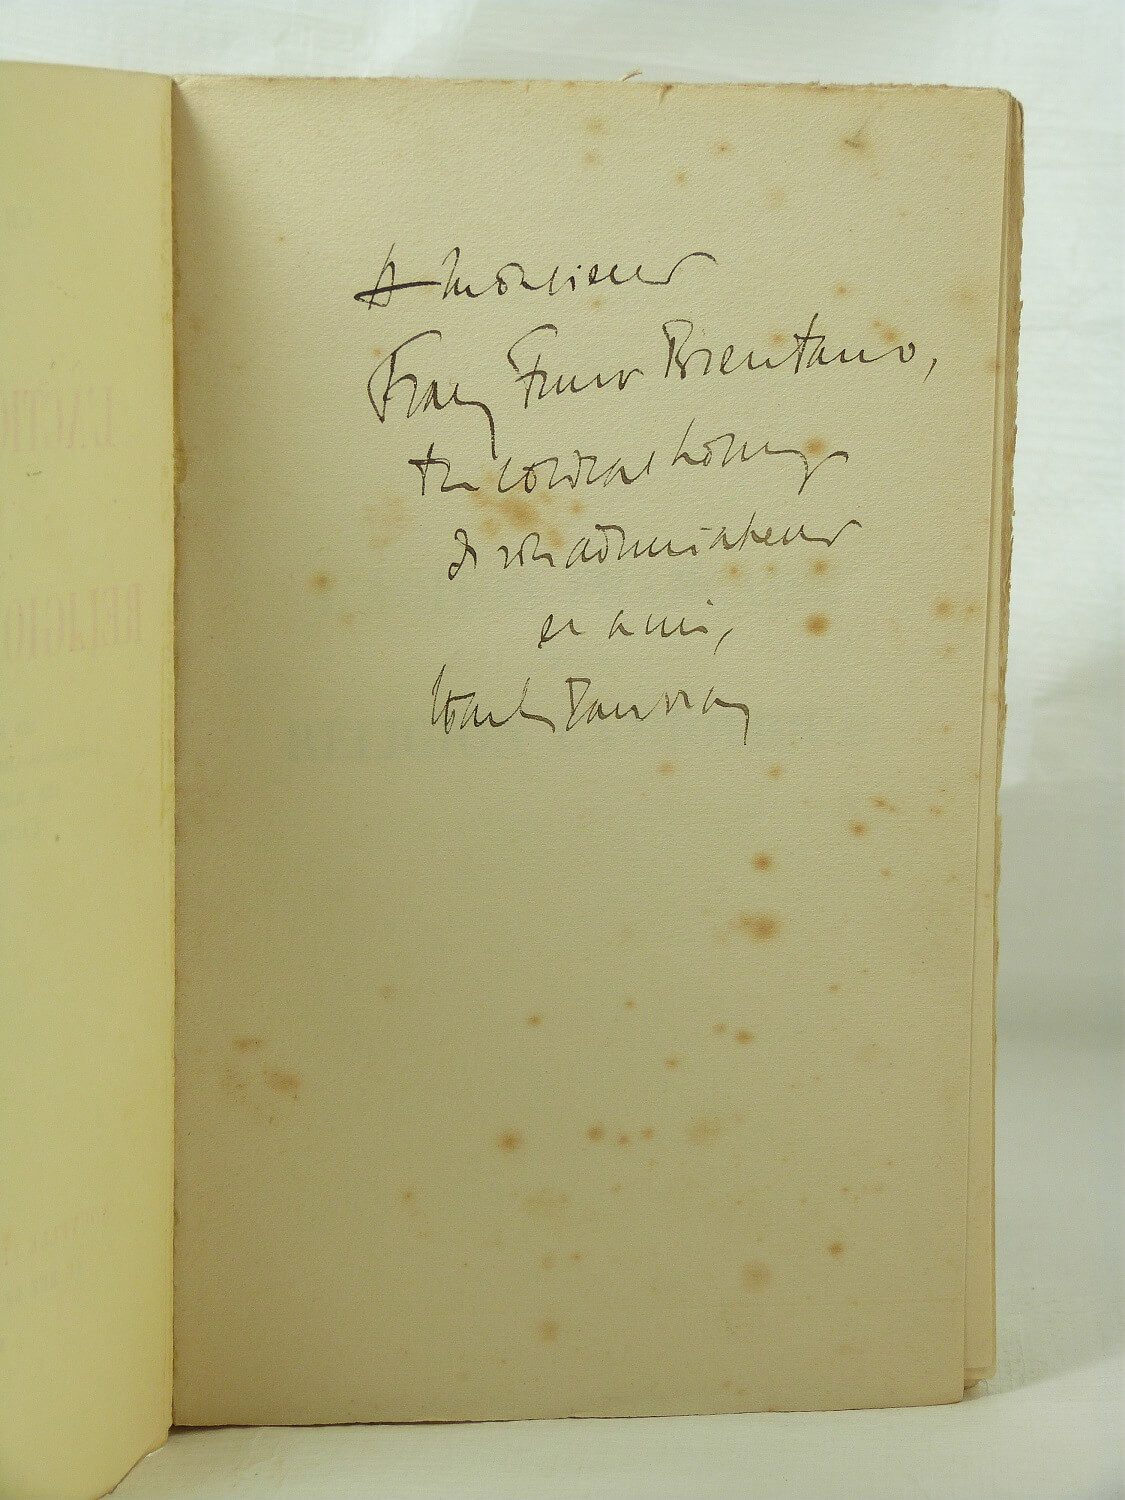 A Monsieur
Franz Funck Brentano,
très cordial hommage
de son admirateur
et ami,
Charles Maurras
L'ACTIO
RELIGIO